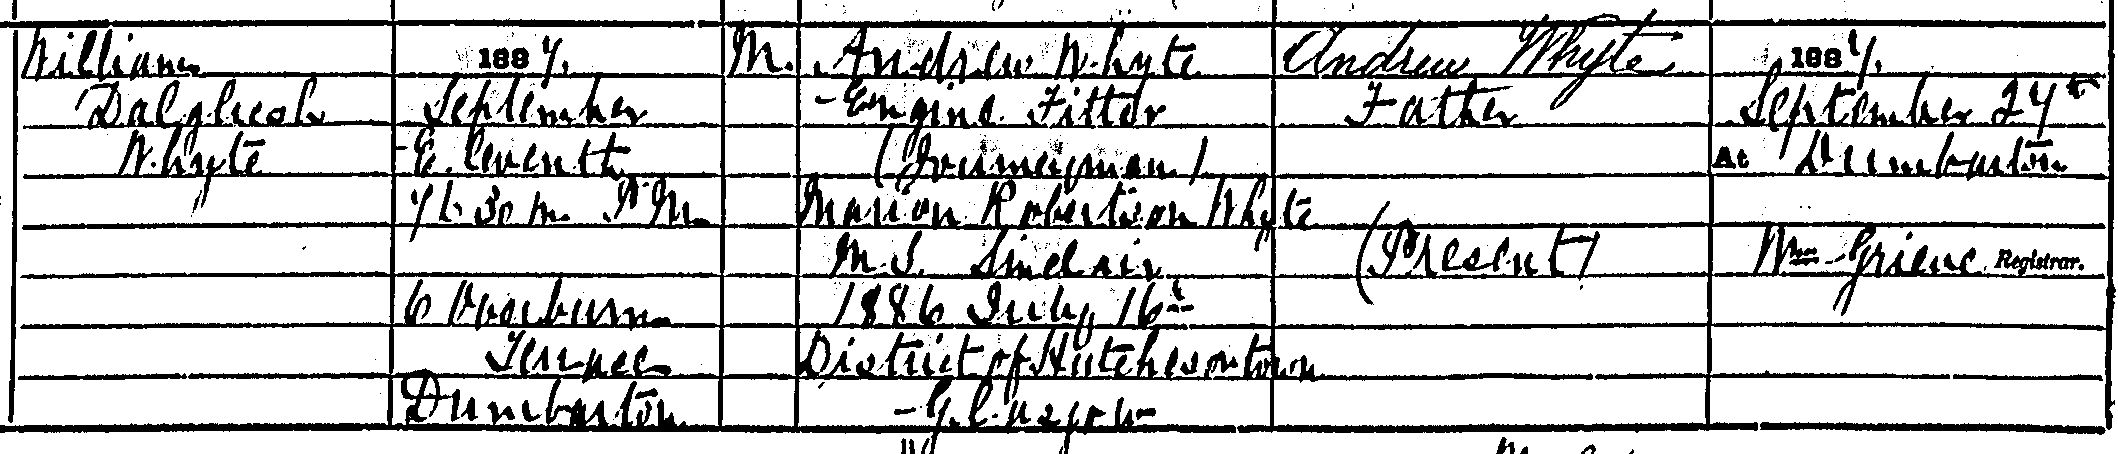 William
Dalgliesh
Whyte
1887.
September
Eleventh
7 h 30 m. P.M.
6
Terrace
Dumbarton
M.
Andrew Whyte
Engine Fitter
(Journeyman)
Marion Robertson Whyte
M.S. Sinclair
1886 July 16th
District of Hutchesontown
Glasgow
Andrew Whyte
Father
(Present)
1887.
September 27th
At Dumbarton
Wm Grieve Registrar.